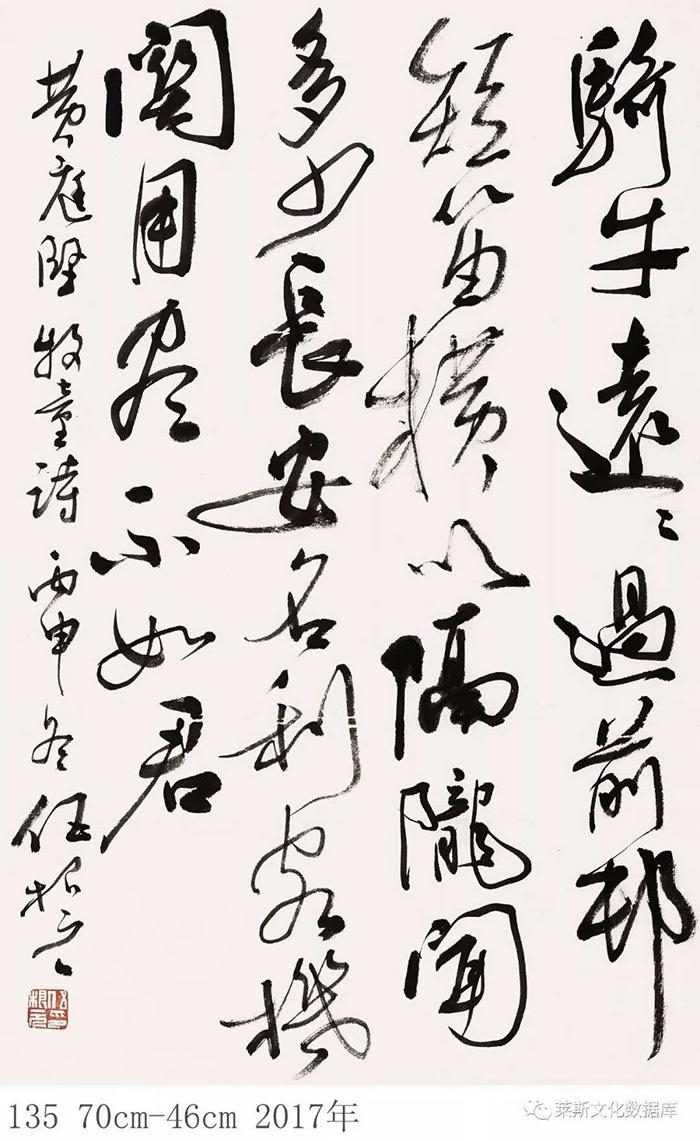 騎牛遠〻過前邨
短笛橫吹隔隴聞
多少長安名利客機
關用尽不如君
黄庭堅牧童詩 丙申冬
135 70cm-46cm 2017年
莱斯文化数据库